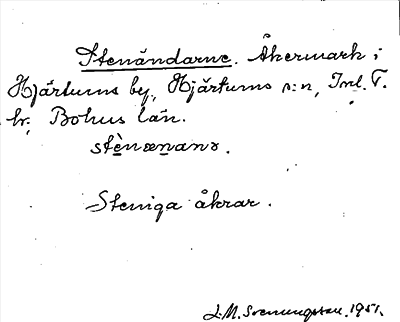 Stenändarne. Åkermark i
Hjärtums by, Hjärtums s:n, Inl. T.
hr, Bohus län.
stènænanɘ.
Steniga åkrar.
J.M. Svenungsson. 1951.